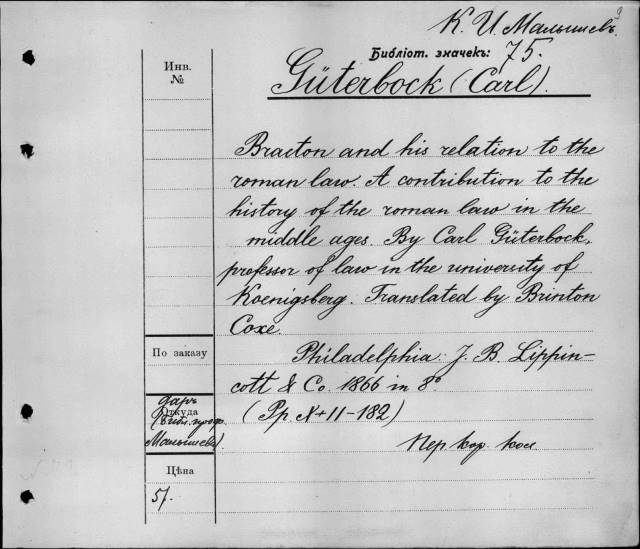 К. И. Малышевъ.
Библіот. значекъ: 75.
Инв.
№
Güterbock (Carl).
Bracton and his relation to the
roman law. A contribution to the
history of the roman law in the
middle ages. By Carl Güterbock,
professor of law in the university of
Koenigsberg. Translated by Brinton
Coxe.
По заказу
Philadelphia: J. B. Lippin-
cott & Co. 1866 in 8°
даръ
Откуда
(Библ. проф.
Малышева)
(Pp. X+11-182)
Пер кор. кол
Цѣна